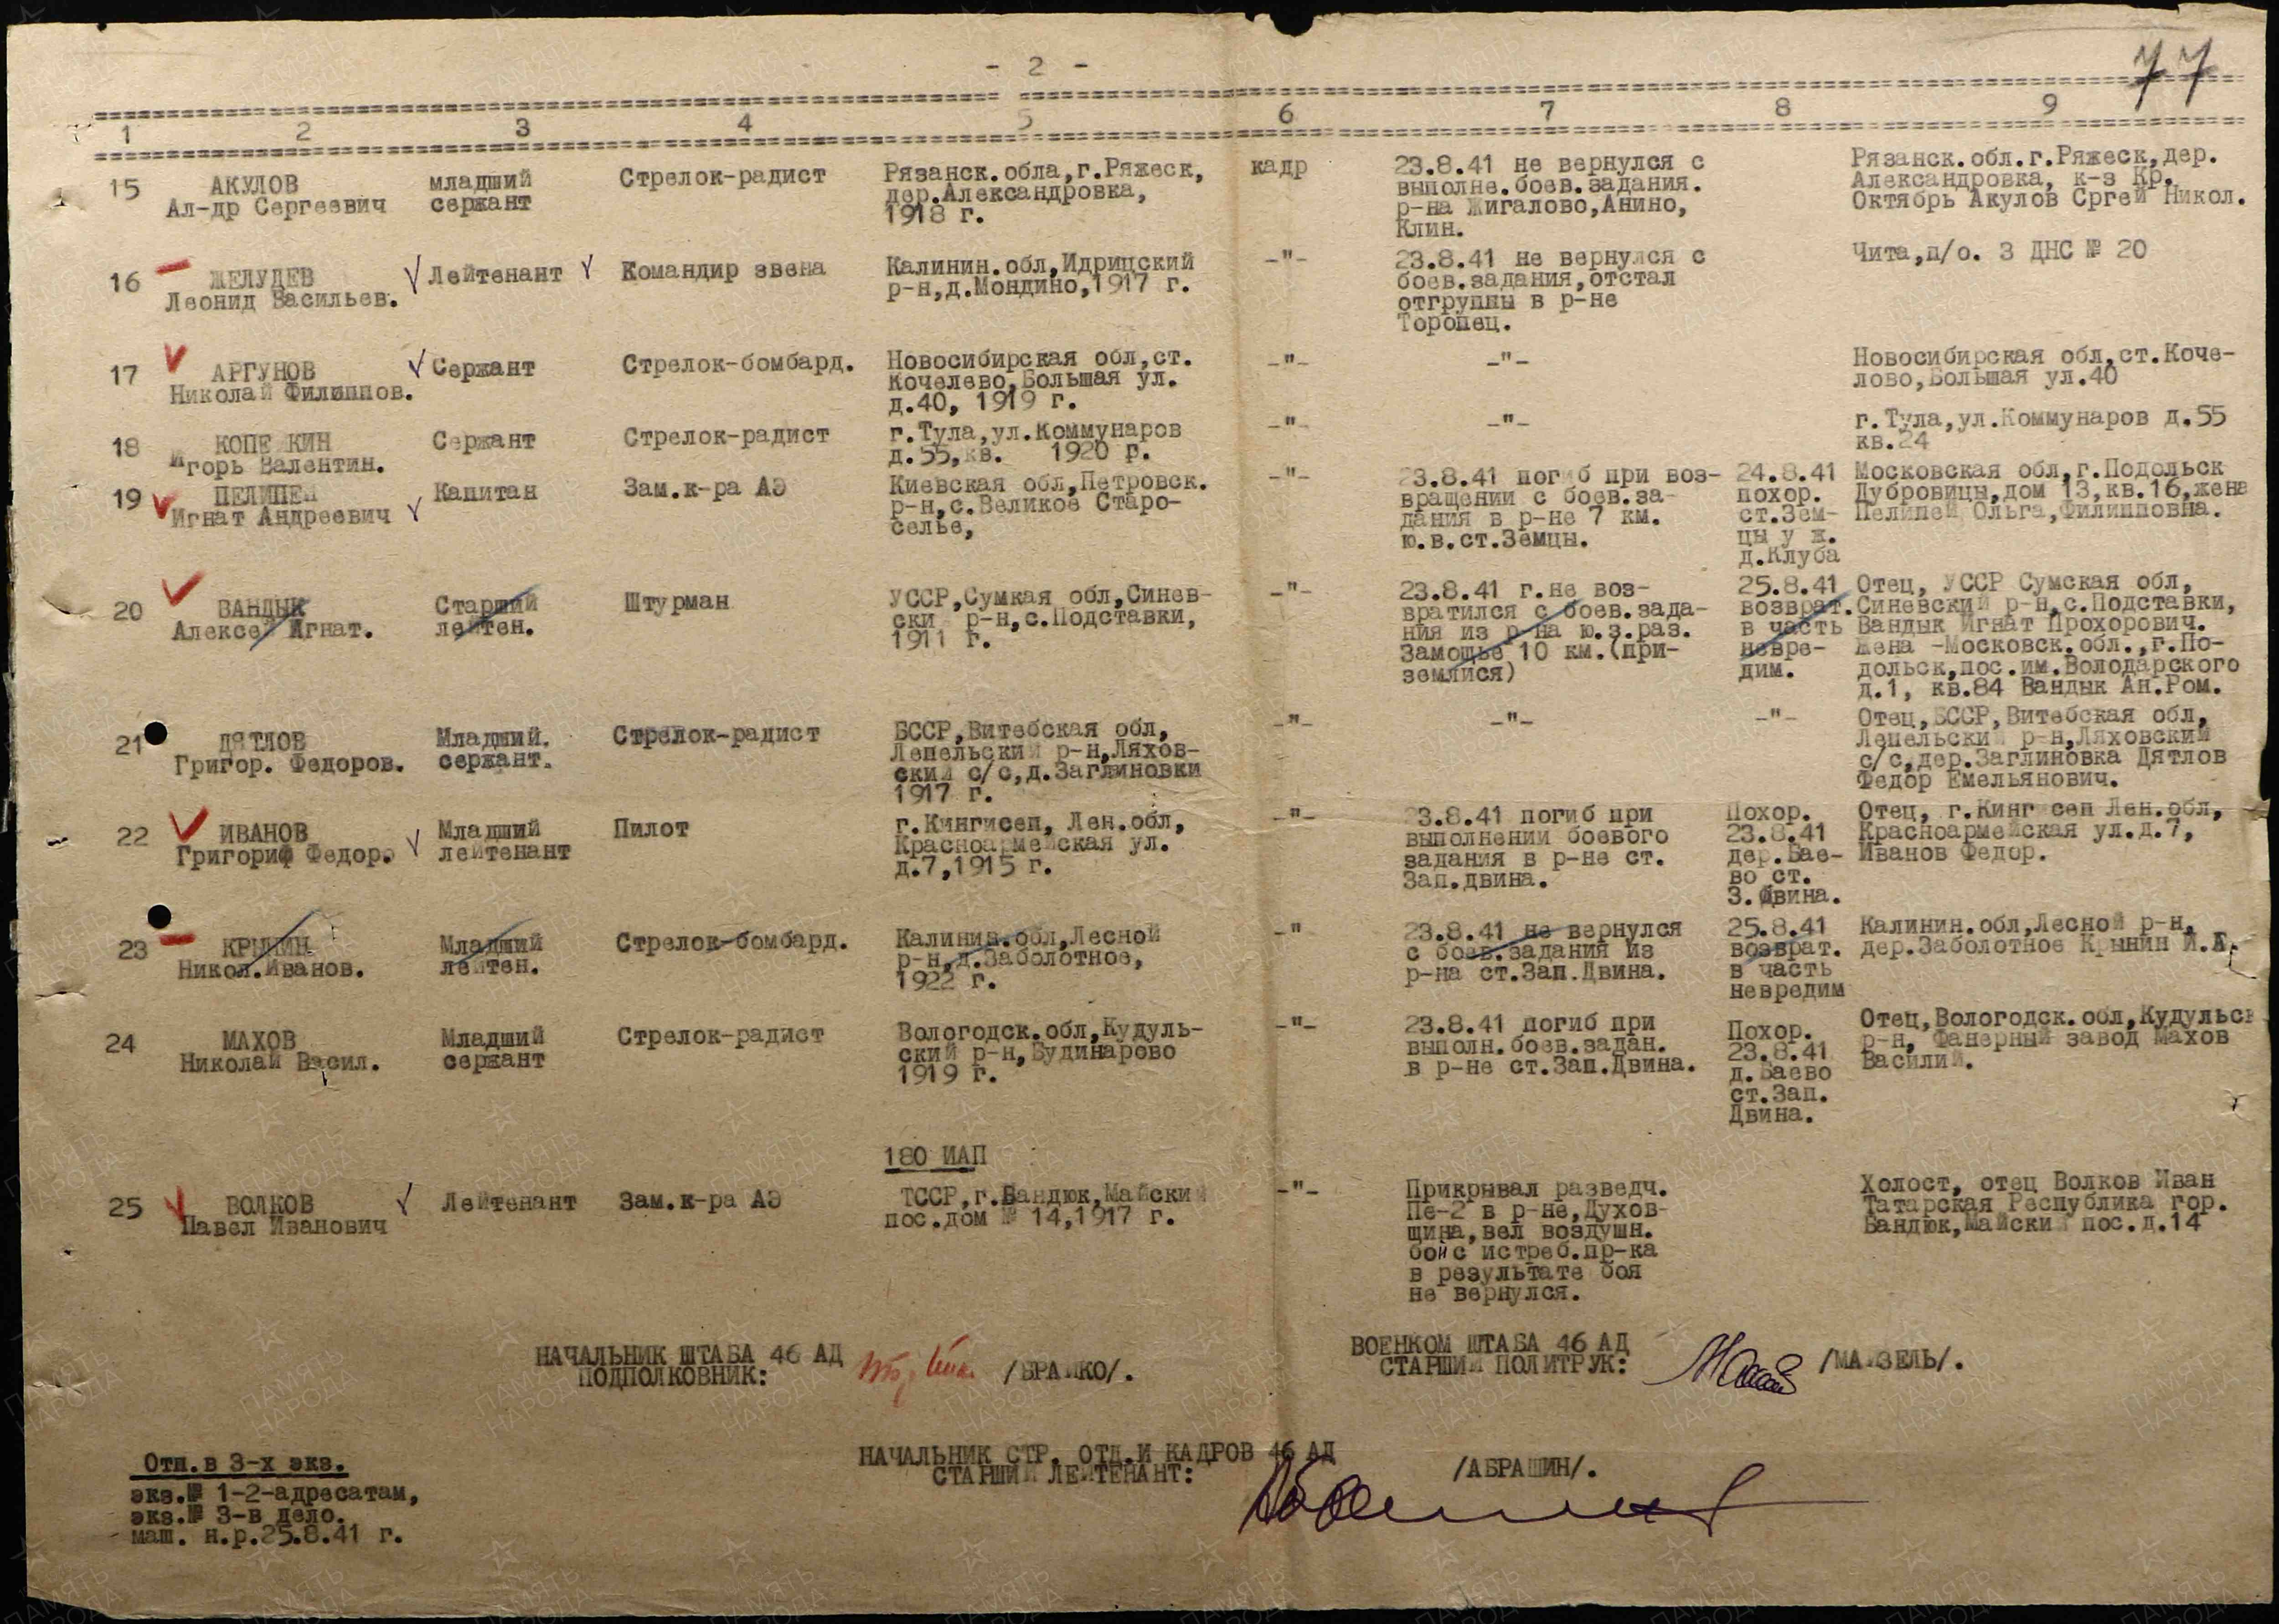 - 2 -
77
1 2 3 4 5 6 7 8 9
15 АКУЛОВ
Ал-др Сергеевич
младший
сержант
Стрелок-радист
Рязанск.обла,г.Ряжеск,
дер.Александровка,
1918 г.
кадр
23.8.41 не вернулся с
выполне.боев.задания.
р-на Жигалово,Анино,
Клин.
Рязанск.обл.г.Ряжеск,дер.
Александровка, к-з Кр.
Октябрь Акулов Сргей Никол.
16 ЖЕЛУДЕВ
Леонид Васильев.
Лейтенант
Командир звена
Калинин.обл,Идрицский
р-н,д.Мондино,1917 г.
-"-
23.8.41 не вернулся с
боев.задания,отстал
отгруппы в р-не
Торопец.
Чита,п/о. 3 ДНС № 20
17 АРГУНОВ
Николай Филиппов.
Сержант
Стрелок-бомбард.
Новосибирская обл,ст.
Кочелево,Большая ул.
д.40, 1919 г.
-"-
-"-
Новосибирская обл,ст.Коче-
лово,Большая ул.40
18 КОПЕ КИН
Игорь Валентин.
Сержант
Стрелок-радист
г.Тула,ул.Коммунаров
д.55,кв. 1920 г.
-"-
-"-
г.Тула,ул.Коммунаров д.55
кв.24
19 ПЕЛИПЕЙ
Игнат Андреевич
Капитан
Зам.к-ра АЭ
Киевская обл,Петровск.
р-н,с.Великое Старо-
селье,
-"-
23.8.41 погиб при воз-
вращении с боев.за-
дания в р-не 7 км.
ю.в.ст.Земцы.
24.8.41
похор.
ст.Зем-
цы у ж.
д.Клуба
Московская обл,г.Подольск
Дубровицы,дом 13,кв.16,жена
Пелипей Ольга,Филипповна.
20 ВАНДЫК
Алексей Игнат.
Старший
лейтен.
Штурман
УССР,Сумкая обл,Синев-
ски р-н,с.Подставки,
1911 г.
-"-
23.8.41 г.не воз-
вратился с боев.зада-
ния из р-на ю.з.раз.
Замощье 10 км.(при-
землися)
25.8.41
возврат.
в часть
невре-
дим.
Отец, УССР Сумская обл,
Синевский р-н,с.Подставки,
Вандык Игнат Прохорович.
Жена -Московск.обл.,г.По-
дольск,пос.им.Володарского
д.1, кв.84 Вандык Ан.Ром.
21 ДЯТЛОВ
Григор. Федоров.
Младший.
сержант.
Стрелок-радист
БССР,Витебская обл,
Лепельский р-н,Ляхов-
ский с/с,д.Заглиновки
1917 г.
-"-
-"-
-"-
Отец,БССР,Витебская обл,
Лепельский р-н,Ляховский
с/с,дер.Заглиновка Дятлов
Федор Емельянович.
22 ИВАНОВ
Григориф Федор.
Младший
лейтенант
Пилот
г.Кингисеп, Лен.обл,
Красноармейская ул.
д.7,1915 г.
-"-
23.8.41 погиб при
выполнении боевого
задания в р-не ст.
Зап.двина.
Похор.
23.8.41
дер.Бае-
во ст.
З.Двина.
Отец, г.Кинг сеп Лен.обл,
Красноармейская ул.д.7,
Иванов Федор.
23 КРЫНИН
Никол.Иванов.
Младший
лейтен.
Стрелок-бомбард.
Калинин.обл,Лесной
р-н,д.Заболотное,
1922 г.
-"
23.8.41 не вернулся
с боев.задания из
р-на ст.Зап.Двина.
25.8.41
возврат.
в часть
невредим
Калинин.обл,Лесной р-н,
дер.Заболотное Крынин И.
24 МАХОВ
Николай Васил.
Младший
сержант
Стрелок-радист
Вологодск.обл,Кудуль-
ский р-н,Будинарово
1919 г.
-"-
23.8.41 погиб при
выполн.боев.задан.
в р-не ст.Зап.Двина.
Похор.
23.8.41
д.Баево
ст.Зап.
Двина.
Отец,Вологодск.обл,Кудульск
р-н, Фанерный завод Махов
Василий.
180 ИАП
25 ВОЛКОВ
Павел Иванович
Лейтенант
Зам.к-ра АЭ
ТССР,г.Бандюк,Майский
пос.дом № 14,1917 г.
-"-
Прикрывал разведч.
Пе-2 в р-не,Духов-
щина,вел воздушн.
бой с истреб.пр-ка
в результате боя
не вернулся.
Холост, отец Волков Иван
Татарская Республика гор.
Бандюк,Майский пос.д.14
НАЧАЛЬНИК ШТАБА 46 АД
ПОДПОЛКОВНИК: /БРАЙКО/.
ВОЕНКОМ ШТАБА 46 АД
СТАРШИЙ ПОЛИТРУК: /МАЙЗЕЛЬ/.
НАЧАЛЬНИК СТР. ОТД.И КАДРОВ 46 АД
СТАРШИЙ ЛЕЙТЕНАНТ: /АБРАШИН/.
Отп.в 3-х экз.
экз.№ 1-2-адресатам,
экз.№ 3-в дело.
маш. н.р.25.8.41 г.